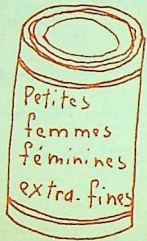 Petites
femmes
féminines
extra-fines